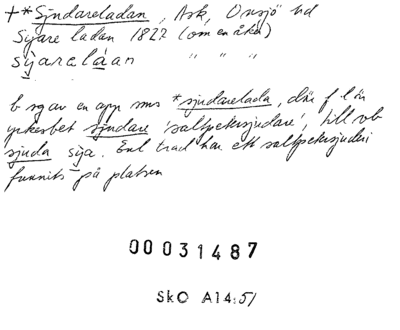 +*Sjudareladan, Ask, Onsjö hd
Sijare ladan 1827 (om en åker)
sijareláan " " "
b sg av en app sms *sjudarelada, där f l är
yrkesbet sjudare 'saltpetersjudare', till vb
sjuda sija. Enl trad har ett saltpetersjuderi
funnits på platsen
00031487
SkO A14:51